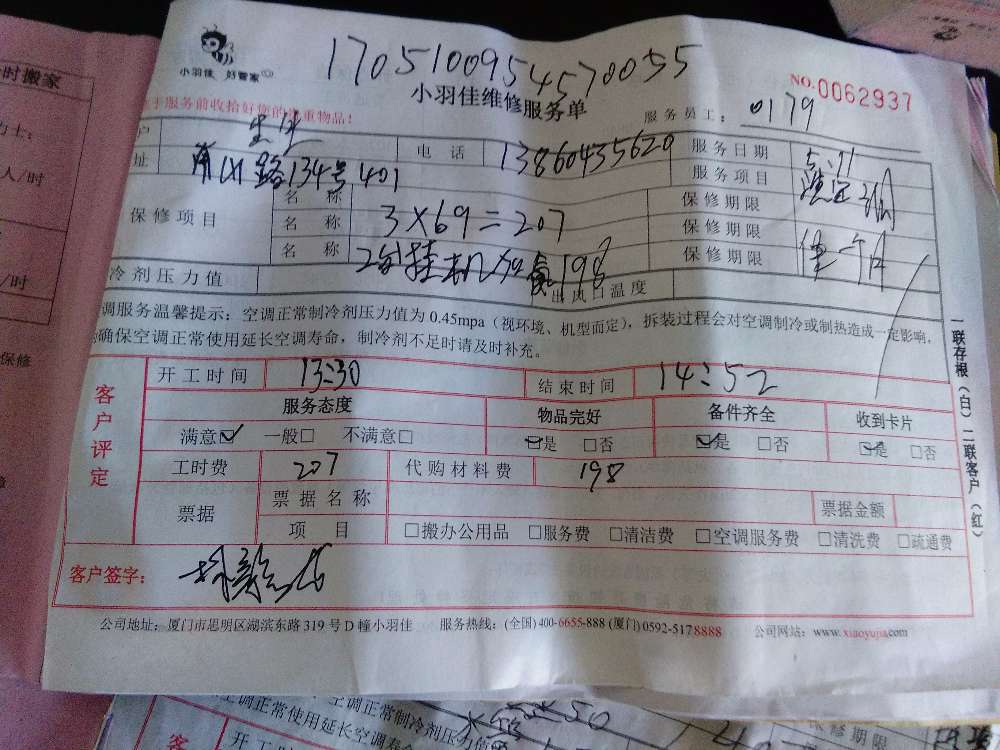 小羽佳 好管家
1705100954570055
小羽佳维修服务单
NO.0062937
于服务前收拾好您的贵重物品！
服务员工： 0179
户
电话 13860435620 服务日期 5.11
址 路134号401 服务项目
保修项目
名称 保修期限
名称 3×69=207 保修期限
名称 挂机加氟198 保修期限
冷剂压力值 出风口温度
调服务温馨提示：空调正常制冷剂压力值为 0.45mpa（视环境、机型而定），拆装过程会对空调制冷或制热造成一定影响，
确保空调正常使用延长空调寿命，制冷剂不足时请及时补充。
客户评定
开工时间 13:30 结束时间 14:52
服务态度 物品完好 备件齐全 收到卡片
满意☑ 一般□ 不满意□ ☑是 □否 ☑是 □否 ☑是 □否
工时费 207 代购材料费 198
票据 票据名称 票据金额
项目 □搬办公用品 □服务费 □清洁费 □空调服务费 □清洗费 □疏通费
客户签字：
公司地址：厦门市思明区湖滨东路 319 号 D 幢小羽佳 服务热线：(全国) 400-6655-888 (厦门) 0592-5178888 公司网站：www.xiaoyujia.com
一联存根（白）二联客户（红）
时搬家
力士：
人/时
/时
保修
空调正常制冷剂压力值
调正常使用延长空调寿命
开工时
保修期限